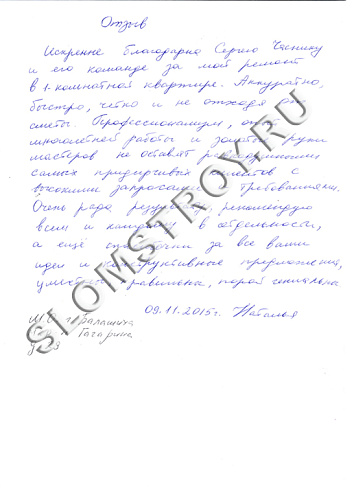 Отзыв
Искренне благодарна Сергею Часнику
и его команде за мой ремонт
в 1-комнатной квартире. Аккуратно,
быстро, чётко и не отходя от
сметы. Профессионализм, опыт
многолетней работы и золотые руки
мастеров не оставят равнодушными
самых придирчивых клиентов с
высокими запросами и требованиями.
Очень рада результату, рекомендую
всем и каждому в отдельности,
а ещё спасибо за все ваши
идеи и конструктивные предложения,
уместны, правильны, порой гениальны
09.11.2015г. Наталья
г. Балашиха
Гагарина
SLOMSTROY.RU